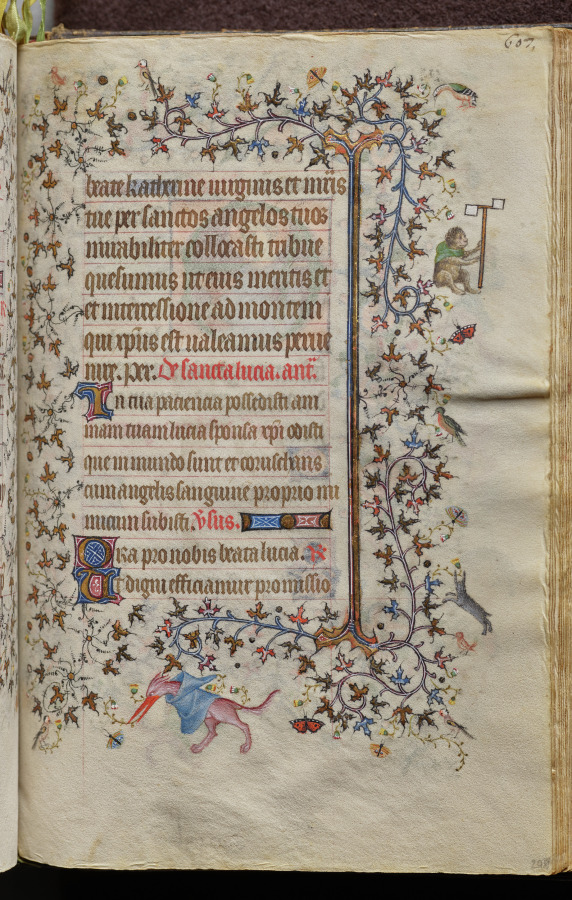 607,
beate katherine uirginis et mris
tue per sanctos angelos tuos
mirabiliter collocasti tribue
quesumus ut eius meritis et
et intercessione ad montem
qui xpus est ualeamus perue
nire. per. De sancta lucia. ant.
In tua paciencia possedisti ani
mam tuam lucia sponsa xpi odisti
que in mundo sunt et coruscans
cum angelis sanguine proprio ini
micum subisti. Vsus.
Ora pro nobis beata lucia. R
Ut digni efficiamur promissio